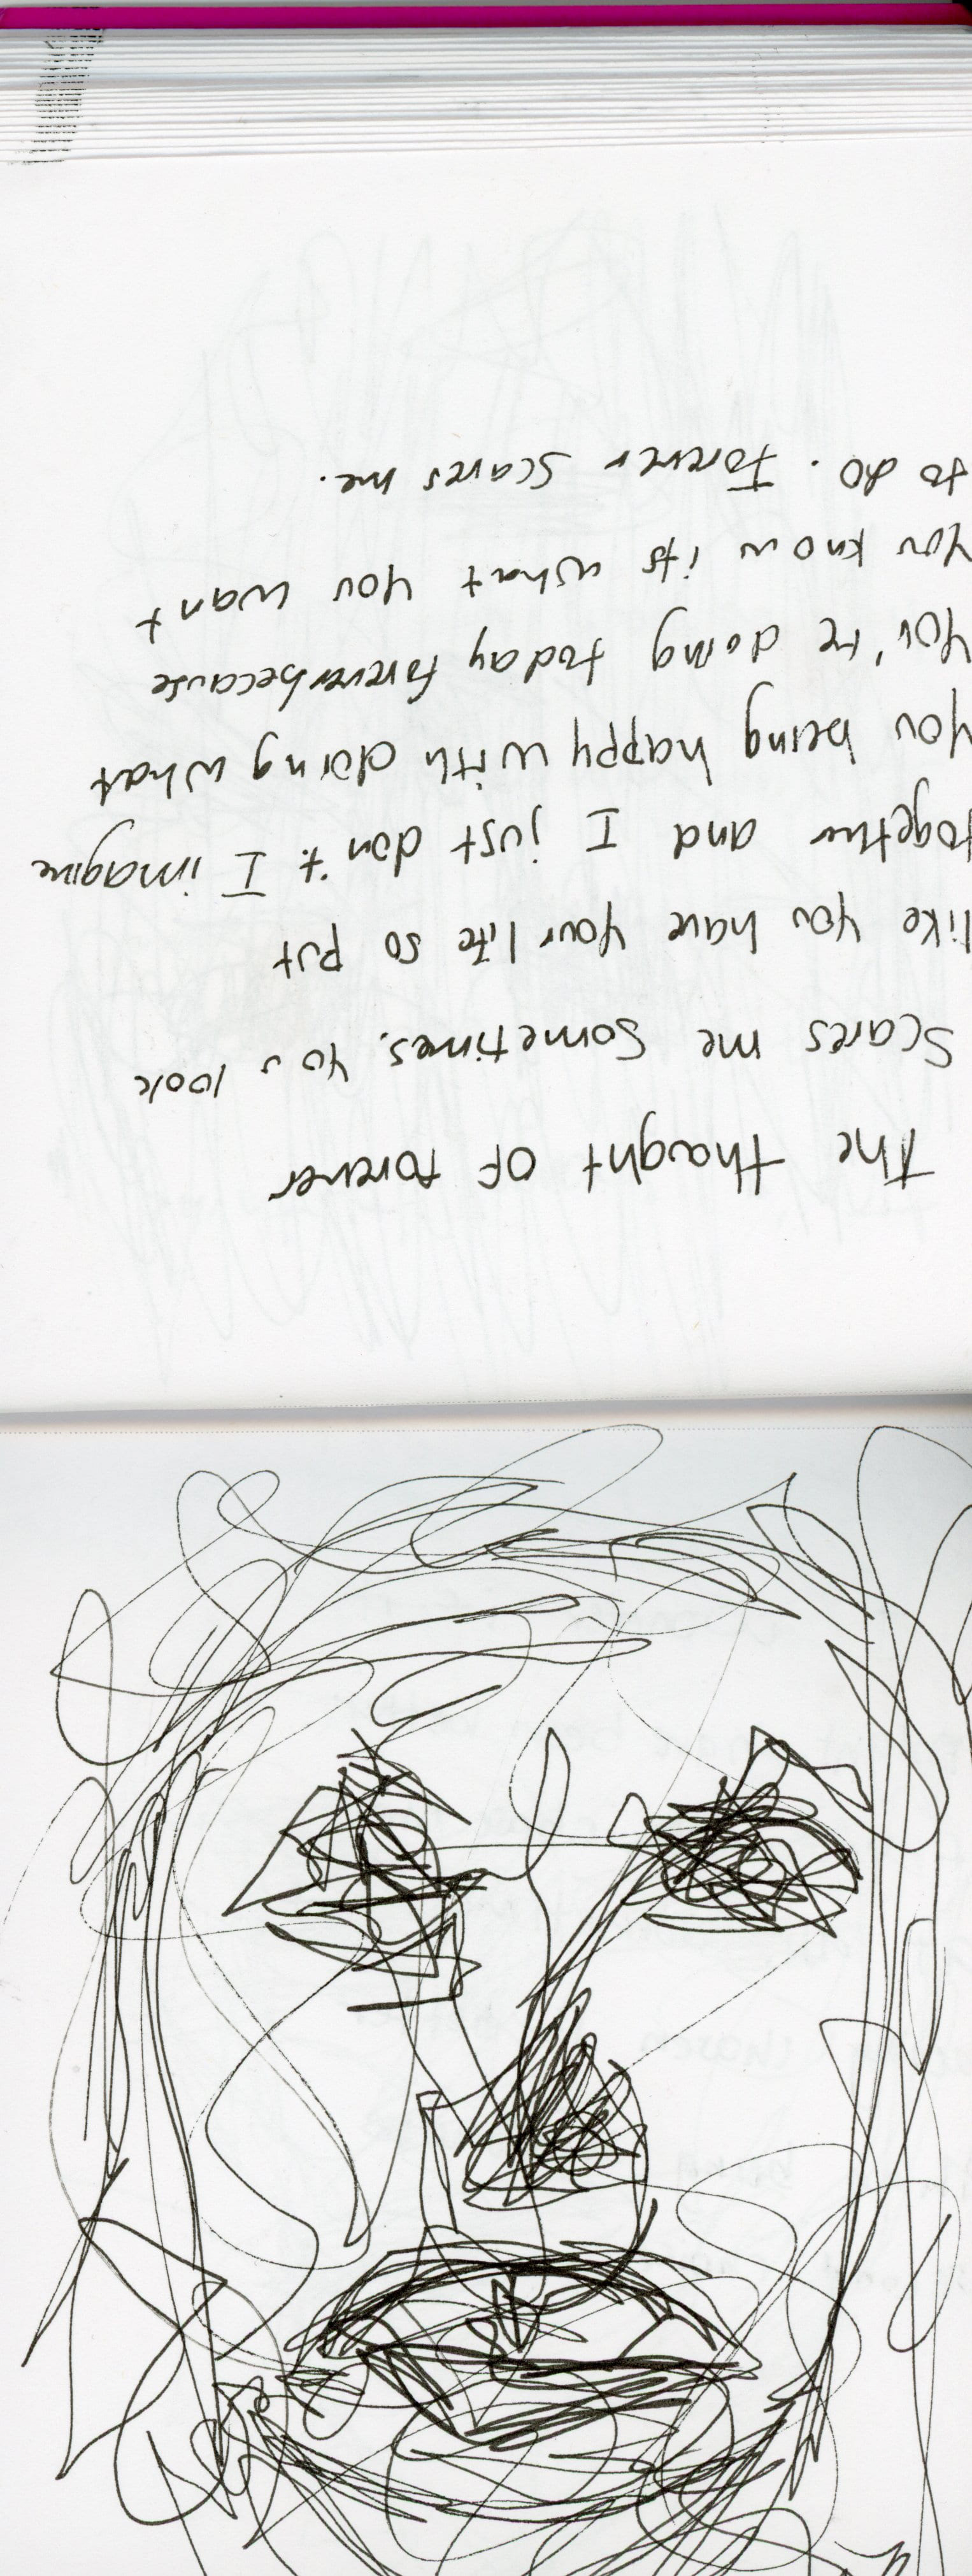 The thought of forever
scares me sometimes. You look
like you have your life so put
together and I just don't. I imagine
you being happy with doing what
you're doing today forever because
you know its what you want
to do. Forever scares me.